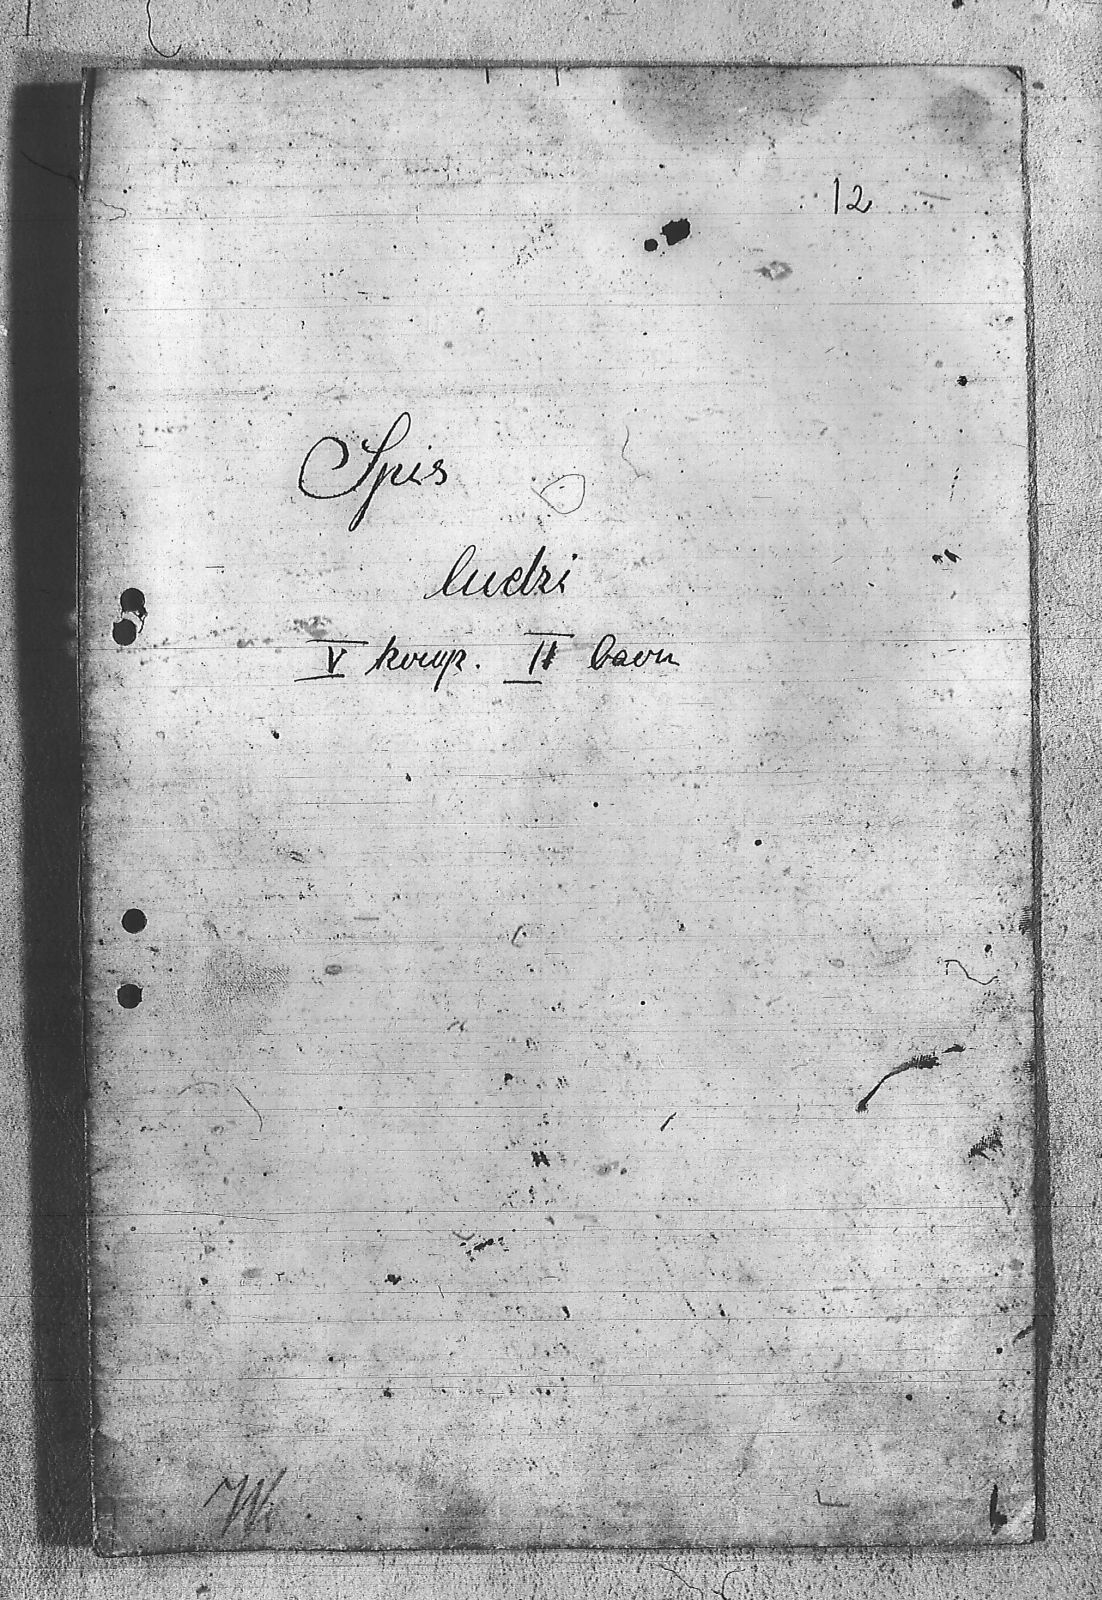 12
Spis
ludzi
V komp. II baon